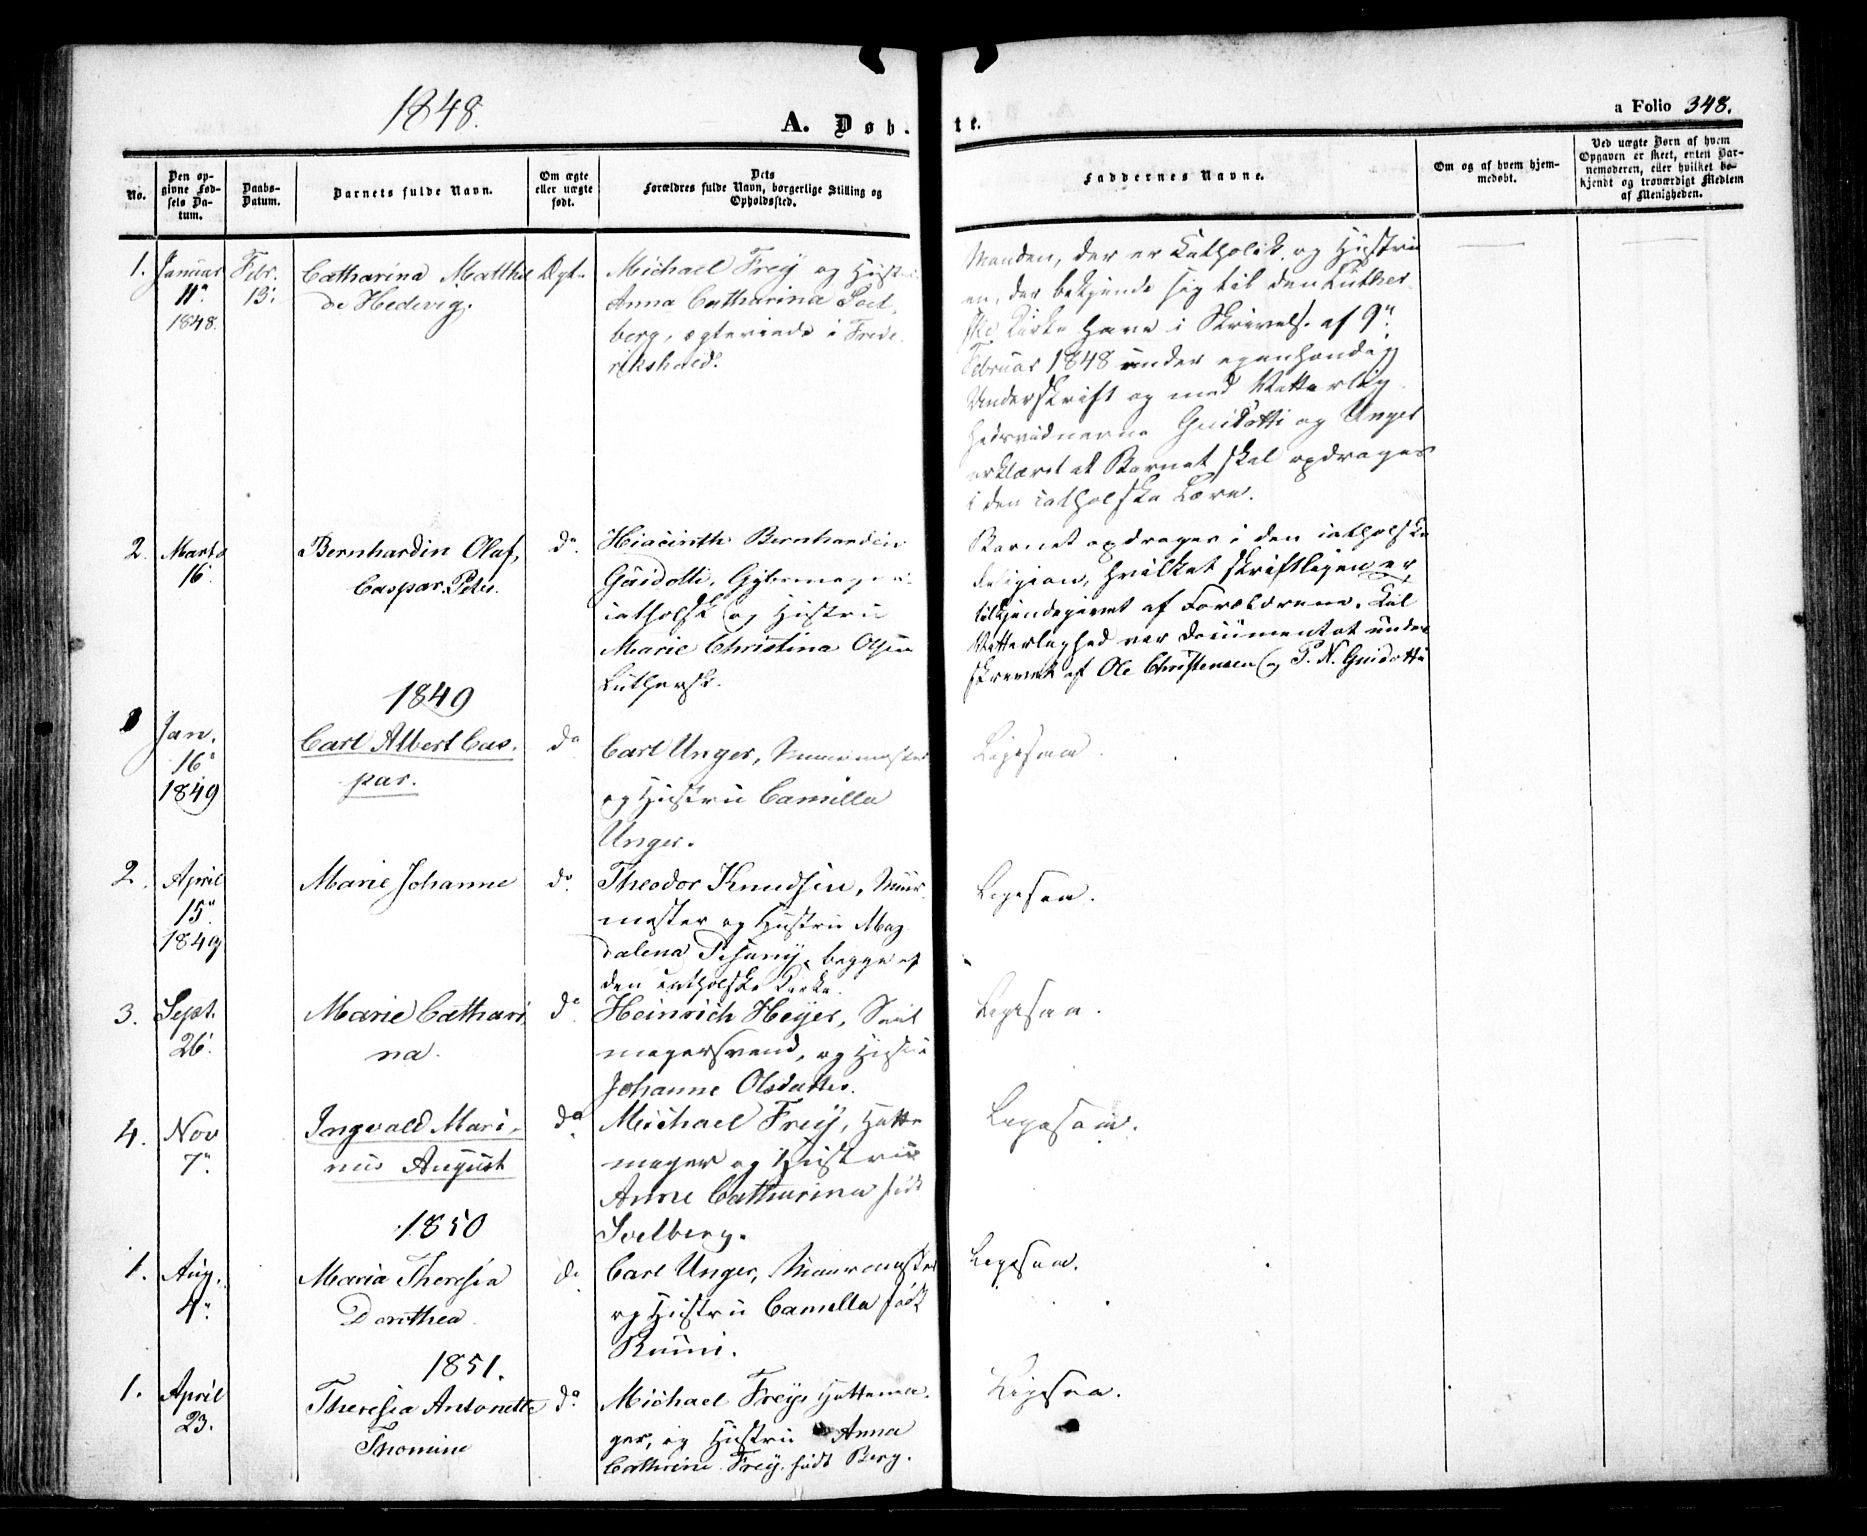 1848.
A. Døbte.
a Folio 348.
No.
Den opgivne Fødsels Datum.
Daabs-Datum.
Barnets fulde Navn.
Om ægte eller uægte født.
Dets Forældres fulde Navn, borgerlige Stilling og Opholdssted.
Faddernes Navne.
Om og af hvem hjemmedøbt.
Ved uægte Børn af hvem Opgaven er skeet, enten Barnemoderen, eller hvilket bekjendt og troværdigt Medlem af Menigheden.
1. Januar 11" 1848.
Febr. 13.
Catharina Matthil
de Hedevig.
Ægt.
Michael Frey og Hustru
Anna Catharina Soel
berg, ægteviede i Frede
rikshald.
Manden, der er Catholik, og Hustru
en, der bekjende sig til den Luther
ske Kirke have i Skrivels. af 9"
Februar 1848 under egenhændig
Underskrift og med Vitterlig
hedsvidnerne Guidotti og Unger
erklæret at Barnet skal opdrages
i den catholske Lære.
2. Marts 16.
Bernhardin Olaf,
Caspar Peter.
do.
Hiacinth Bernhardin
Guidotti, Gybsmager
catholsk og Hustru
Marie Christina Olsen
Luthersk.
Barnet opdrages i den catholske
Religion, hvilket skriftligen er
tilkjendegivet af Forældrene. Til
Vitterlighed var Documentet under
skrevet af Ole Christensen og P. N. Guidotti
1849
1 Jan. 16" 1849
Carl Albert Cas
par.
do
Carl Unger, Muurmester
og Hustru Camilla
Unger.
Ligesaa.
2. April 15" 1849
Marie Johanne
do.
Theodor Knudsen, Muur
mester og Hustru Mag
dalena begge af
den catholske Kirke.
Ligesaa.
3. Sept. 26.
Marie Cathari
na.
do
Heinrich Heyer,
magersvend, og Hustru
Johanne Olsdatter.
Ligesaa.
4. Nov 7"
Ingvald Mari
nus August
do.
Michael Frey, Hatte
mager og Hustru
Anne Catharina født
Soelberg.
Ligesaa.
1850
1. Aug. 4"
Maria Theresia
Dorothea.
do
Carl Unger, Muurmester
og Hustru Camilla født
Ligesaa.
1851.
1. April 23.
Theresia Antonette
Thomine
do
Michael Frey, Hattema
ger, og Hustru Anna
Cathrine Frey født Berg.
Ligesaa.